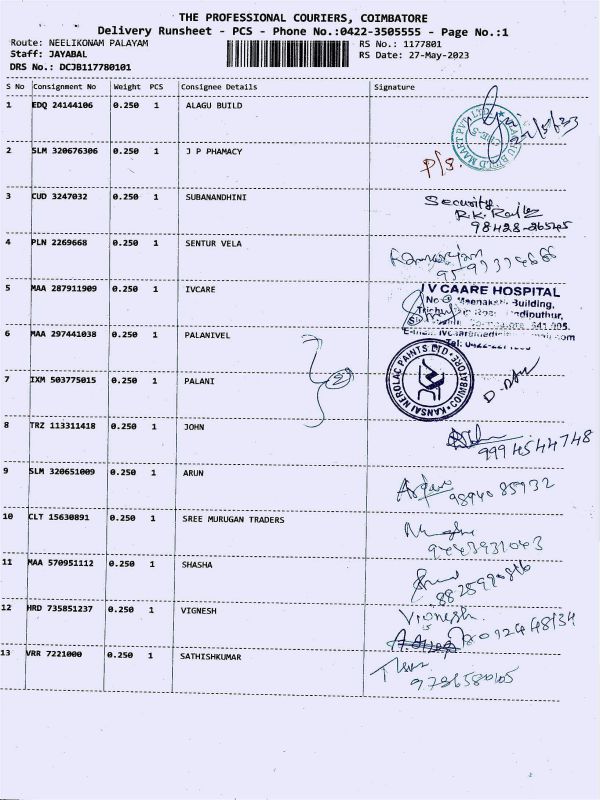 THE PROFESSIONAL COURIERS, COIMBATORE
Delivery Runsheet - PCS - Phone No.:0422-3505555 - Page No.:1
Route: NEELIKONAM PALAYAM
RS No.: 1177801
Staff: JAYABAL
RS Date: 27-May-2023
DRS No.: DCJB117780101
S No Consignment No Weight PCS Consignee Details Signature
1 EDQ 24144106 0.250 1 ALAGU BUILD
2 SLM 320676306 0.250 1 J P PHAMACY
P/S.
3 CUD 3247032 0.250 1 SUBANANDHINI
Security.
98428-26545
4 PLN 2269668 0.250 1 SENTUR VELA
5 MAA 287911909 0.250 1 IVCARE
I V CAARE HOSPITAL
Meenakshi Building,
6 MAA 297441038 0.250 1 PALANIVEL
KANSAI NEROLAC PAINTS LTD COIMBATORE
7 IXM 503775015 0.250 1 PALANI
8 TRZ 113311418 0.250 1 JOHN
9994544748
9 SLM 320651009 0.250 1 ARUN
9894085932
10 CLT 15630891 0.250 1 SREE MURUGAN TRADERS
9443931043
11 MAA 570951112 0.250 1 SHASHA
12 HRD 735851237 0.250 1 VIGNESH
Vignesh
13 VRR 7221000 0.250 1 SATHISHKUMAR